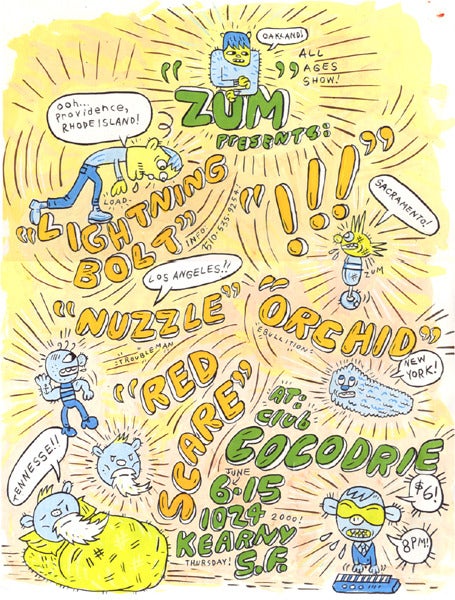 OAKLAND!
ALL
AGES
SHOW!
"ZUM"
PRESENTS:
ooh...
providence,
RHODE ISLAND!
LOAD
"LIGHTNING
BOLT"
INFO: 510-535-9254
"!!!"
SACRAMENTO!
ZUM
LOS ANGELES!!
"NUZZLE"
TROUBLEMAN
"ORCHID"
EBULLITION
NEW
YORK!
"RED
SCARE"
TENNESSE!!
AT:
CLUB
COCODRIE
JUNE
6·15
2000!
1024
KEARNY
THURSDAY!
S.F.
$6!
8PM!